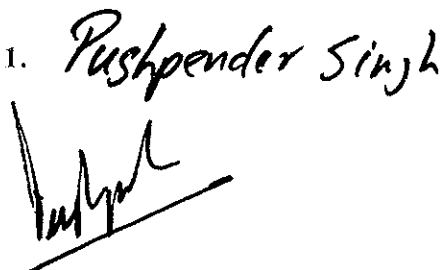 1. Pushpender Singh